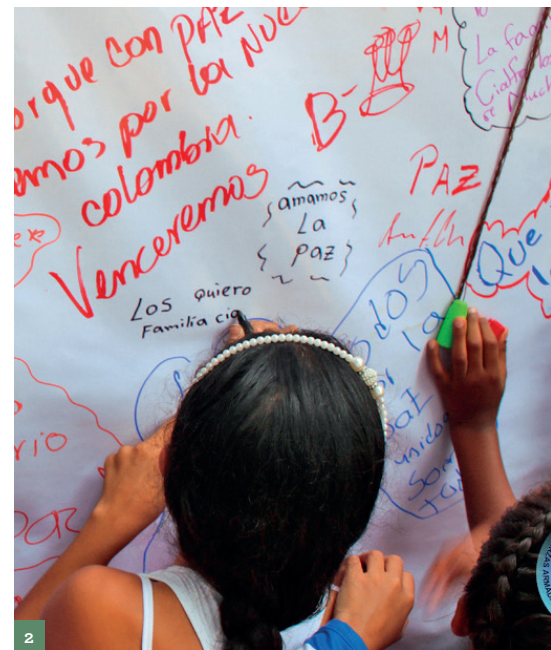 orque con PAZ
amos por la Nue
colombia.
Venceremos
B-
M
La fam
PAZ
amamos
La
PAZ
Los quiero
Familia cia
Que
dos
or la
paz
unidos
som
rio
2